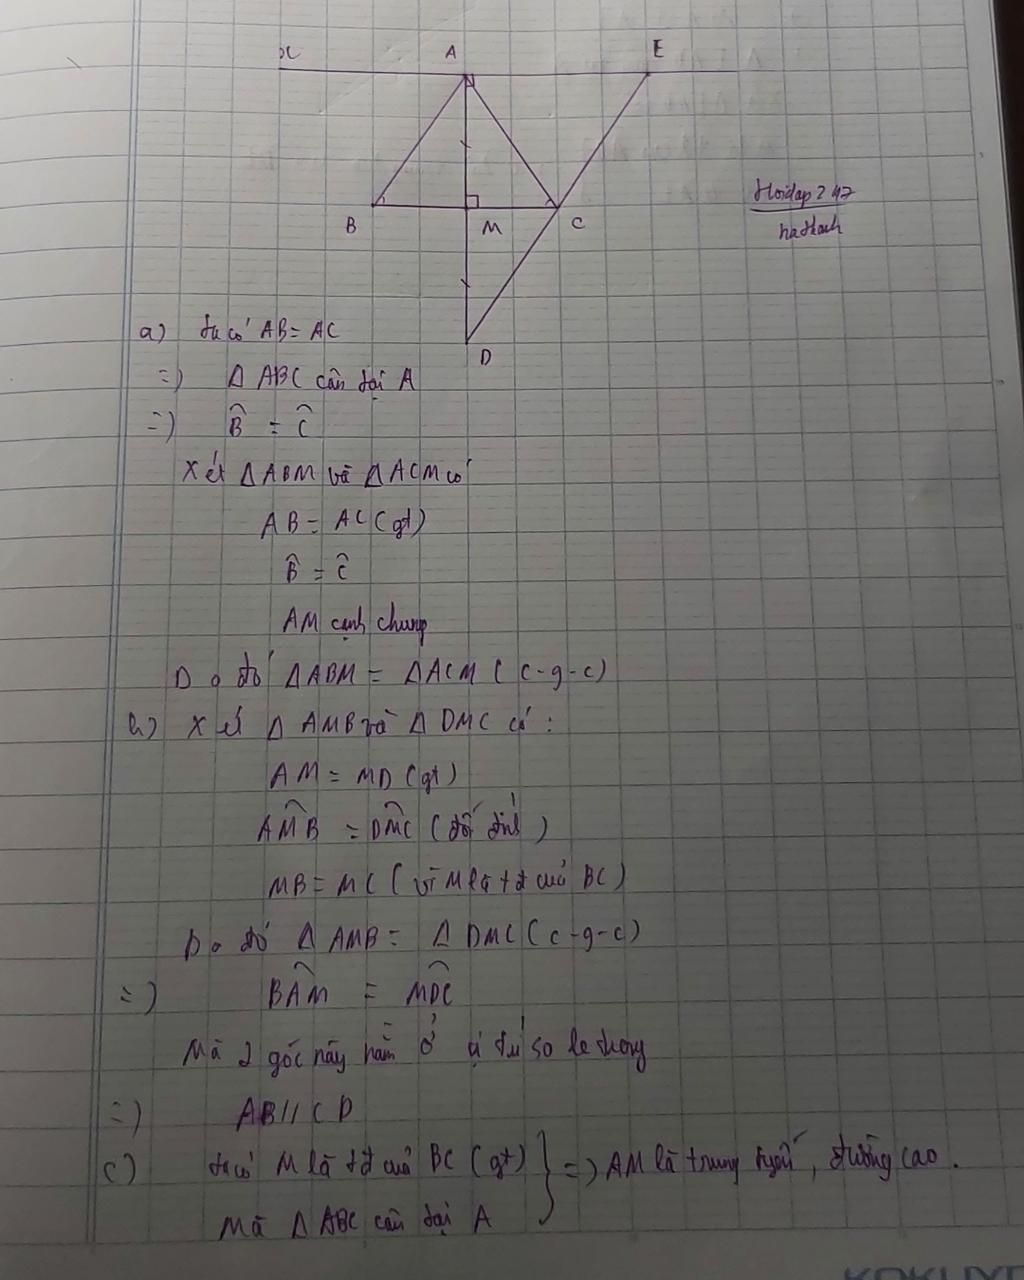 x A E
B M C
D
Hoidap247
hathach
a) ta có AB = AC
=) Δ ABC cân tại A
=) B̂ = Ĉ
Xét Δ ABM và Δ ACM có
AB = AC (gt)
B̂ = Ĉ
AM cạnh chung
Do đó Δ ABM = Δ ACM (c-g-c)
b) Xét Δ AMB và Δ DMC có :
AM = MD (gt)
AM̂B = DM̂C (đối đỉnh)
MB = MC (vì M là tđ của BC)
Do đó Δ AMB = Δ DMC (c-g-c)
=) BÂM = MD̂C
Mà 2 góc này nằm ở vị trí so le trong
=) AB // CD
c) ta có M là tđ của BC (gt) } =) AM là trung tuyến, đường cao.
Mà Δ ABC cân tại A
KOKUYO